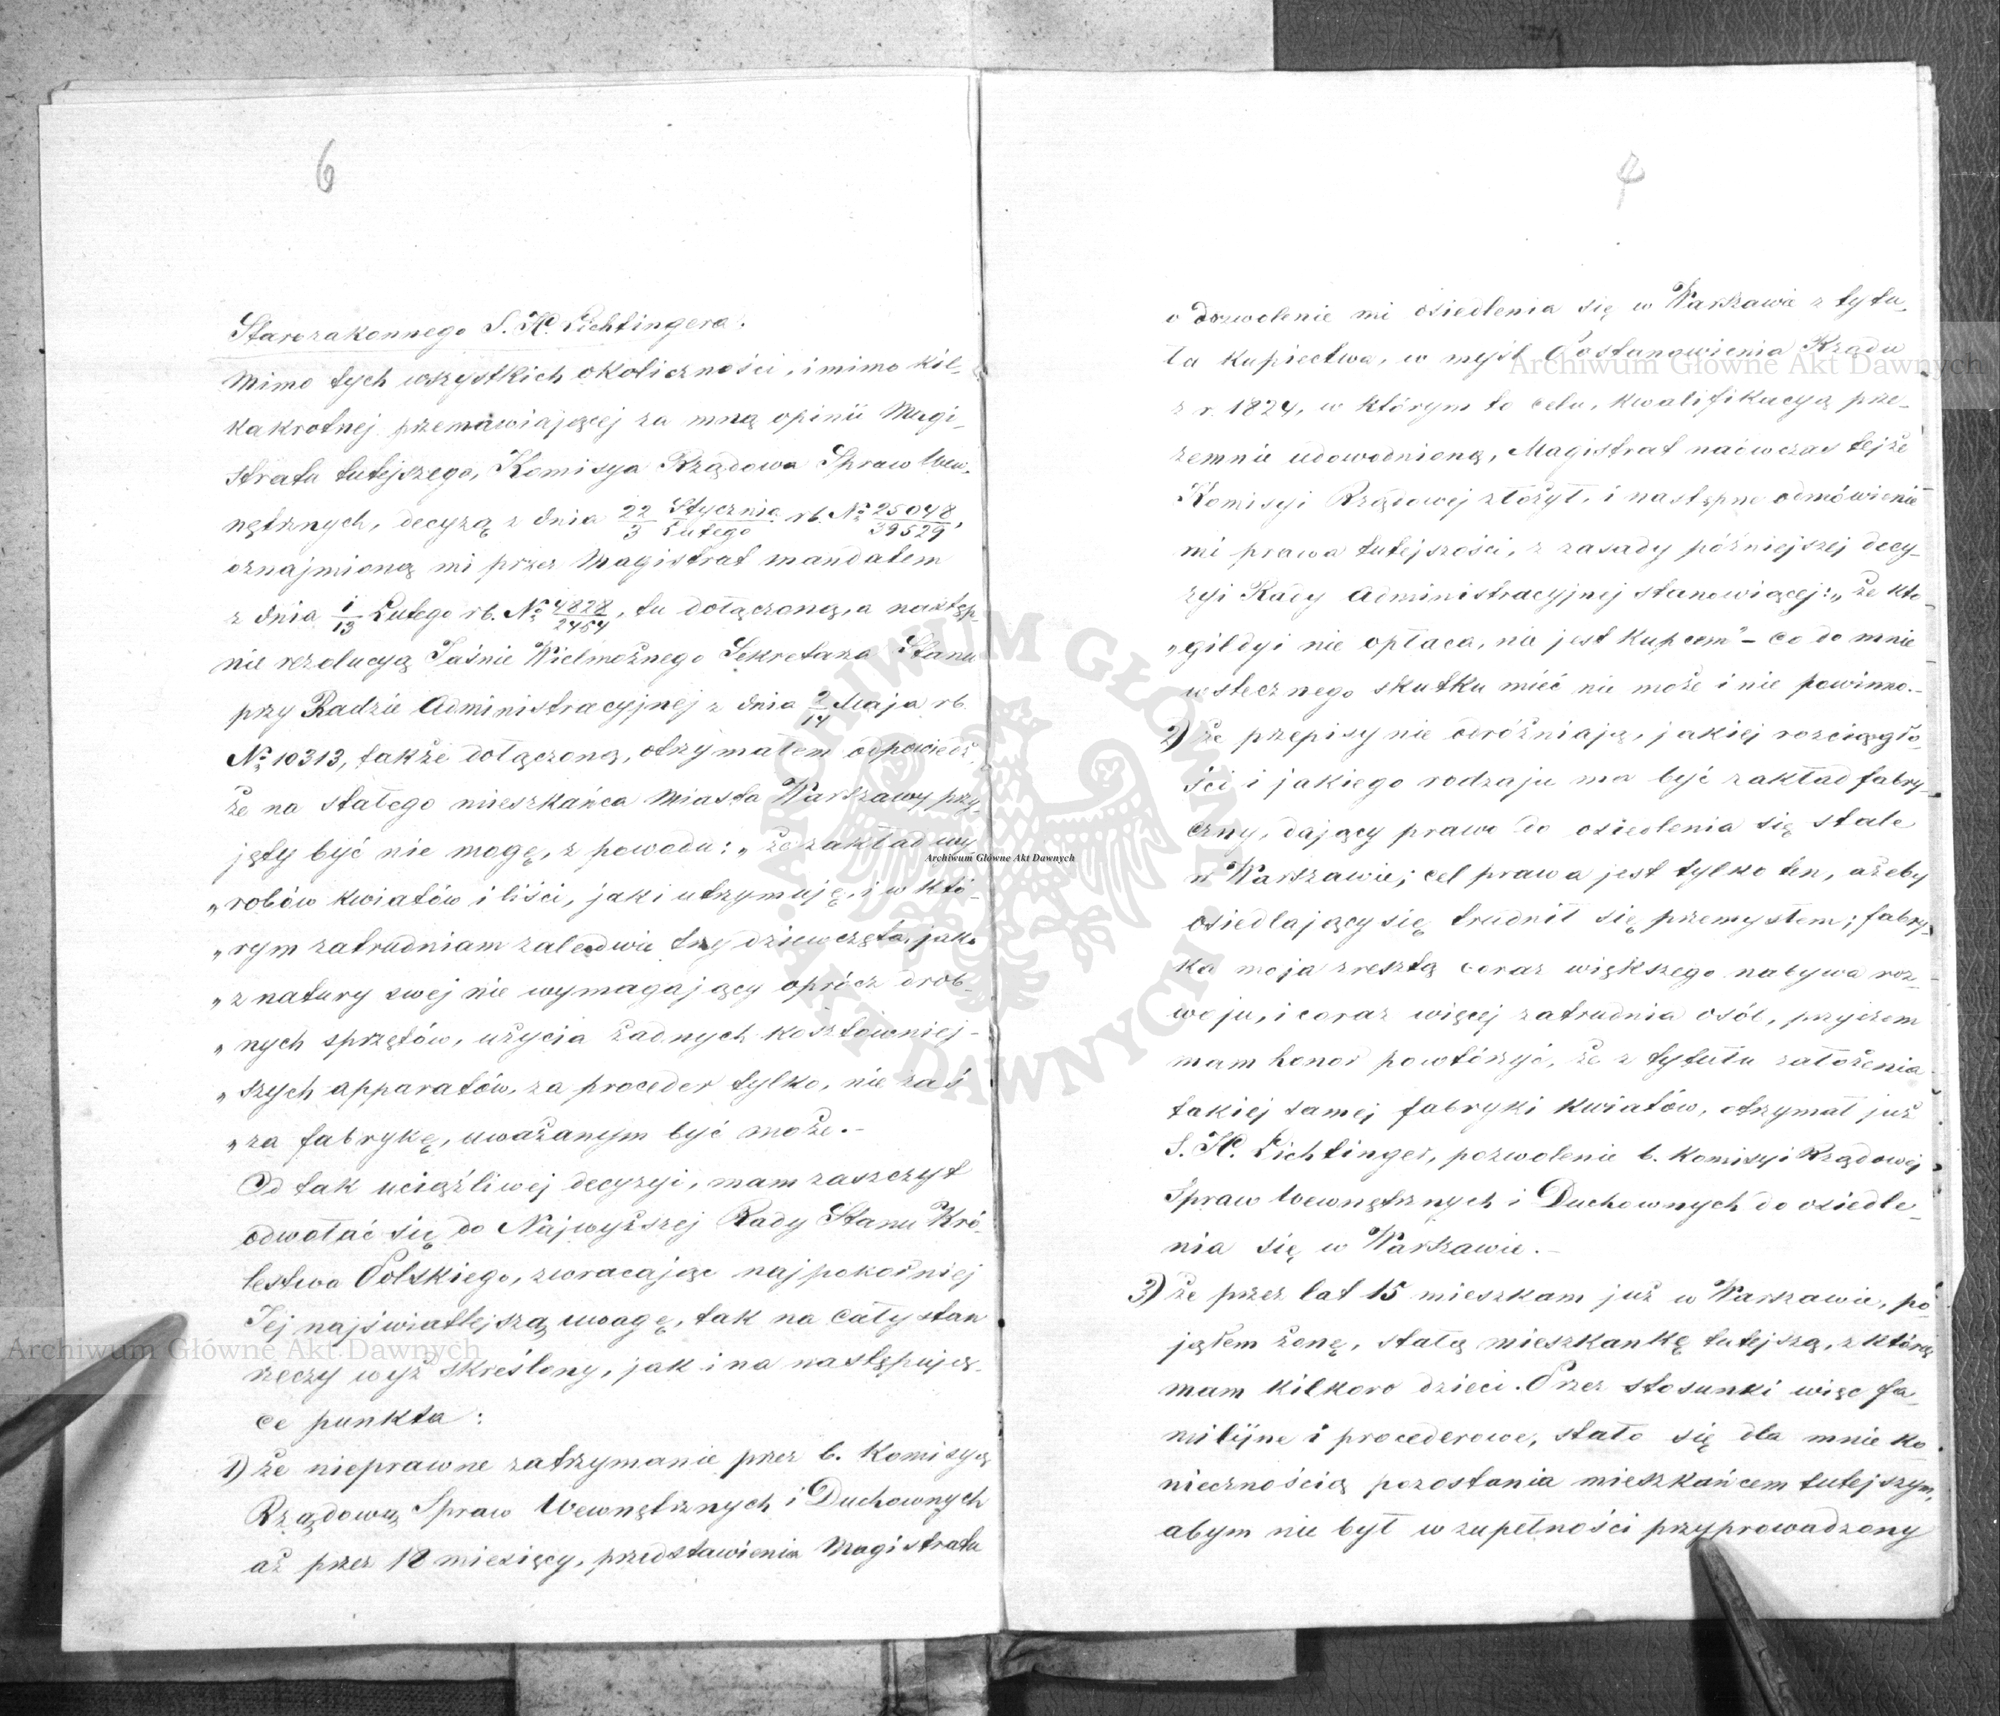 6
Starozakonnego S. H. Lichtingera.
Mimo tych wszystkich okoliczności, i mimo kil-
kakrotnej przemawiającej za mną opinii Magi-
stratu tutejszego, Komisya Rządowa Spraw Wew-
nętrznych, decyzą z dnia 22 Stycznia / 3 Lutego rb. № 25048/39529,
oznajmioną mi przez Magistrat mandatem
z dnia 1/13 Lutego rb. № 4828/2454, tu dołączoną, a następ-
nie rezolucyą Jaśnie Wielmożnego Sekretarza Stanu
przy Radzie Administracyjnej z dnia 2/14 Maja rb.
№ 10313, także dołączoną, otrzymałem odpowiedź,
że na stałego mieszkańca Miasta Warszawy przy-
jęty być nie mogę, z powodu: „że zakład wy-
„robów kwiatów i liści, jaki utrzymuję, i w któ-
„rym zatrudniam zaledwie trzy dziewczęta, jako
„z natury swej nie wymagający oprócz drob-
„nych sprzętów, użycia żadnych kosztowniej-
„szych apparatów, za proceder tylko, nie zaś
„za fabrykę, uważanym być może.-
Od tak uciążliwej decyzyi, mam zaszczyt
odwołać się do Najwyższej Rady Stanu Kró-
lestwa Polskiego, zwracając najpokorniej
Jej najświatlejszą uwagę, tak na cały stan
rzeczy wyż skreślony, jak i na następują-
ce punkta:
1) że nieprawne zatrzymanie przez b. Komisyą
Rządową Spraw Wewnętrznych i Duchownych
aż przez 18 miesięcy, przedstawienia Magistratu
o dozwolenie mi osiedlenia się w Warszawie z tytu-
łu kupiectwa, w myśl Postanowienia Rządu
z r. 1824, w którym to celu, kwalifikacyą prze-
zemnie udowodnioną, Magistrat naówczas tejże
Komisyi Rządowej złożył, i następne odmówienie
mi prawa tutejszości, z zasady późniejszej decy-
zyi Rady Administracyjnej stanowiącej: „że kto
„gildyi nie opłaca, nie jest kupcem" – co do mnie
wstecznego skutku mieć nie może i nie powinno.-
2) że przepisy nie odróżniają, jakiej rozciągło-
ści i jakiego rodzaju ma być zakład fabry-
czny, dający prawo do osiedlenia się stale
w Warszawie; cel prawa jest tylko ten, ażeby
osiedlający się trudnił się przemysłem; fabry-
ka moja zresztą coraz większego nabywa roz-
woju, i coraz więcej zatrudnia osób, przyczem
mam honor powtórzyć, że z tytułu założenia
takiej samej fabryki kwiatów, otrzymał już
S. H. Lichtinger, pozwolenie b. Komisyi Rządowej
Spraw Wewnętrznych i Duchownych do osiedle-
nia się w Warszawie.-
3) że przez lat 15 mieszkam już w Warszawie, po-
jąłem żonę, stałą mieszkankę tutejszą, z którą
mam kilkoro dzieci. Przez stosunki więc fa-
milijne i procederowe, stało się dla mnie ko-
niecznością pozostania mieszkańcem tutejszym,
abym nie był w zupełności przyprowadzony
Archiwum Główne Akt Dawnych
Archiwum Główne Akt Dawnych
Archiwum Główne Akt Dawnych
ARCHIWUM GŁÓWNE AKT DAWNYCH